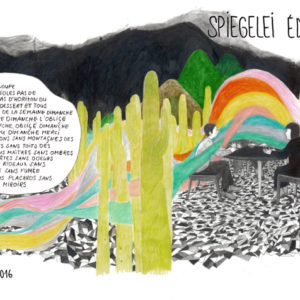 SPIEGELEI ÉD
OUPE
EOLES PAS DE
AS D'HORIZON OU
DESSERT ET TOUS
DE LA SEMAINE DIMANCHE
DIMANCHE L'OBLIGE
OBLIGE DIMANCHE
DIMANCHE MERCI
ONS SANS MONTAGNES DES
SANS TOITS DES
MAÎTRES SANS OMBRES
ÊTES SANS ODEURS
RIDEAUX SANS
SANS FUMÉE
PLACARDS SANS
MIROIRS
016